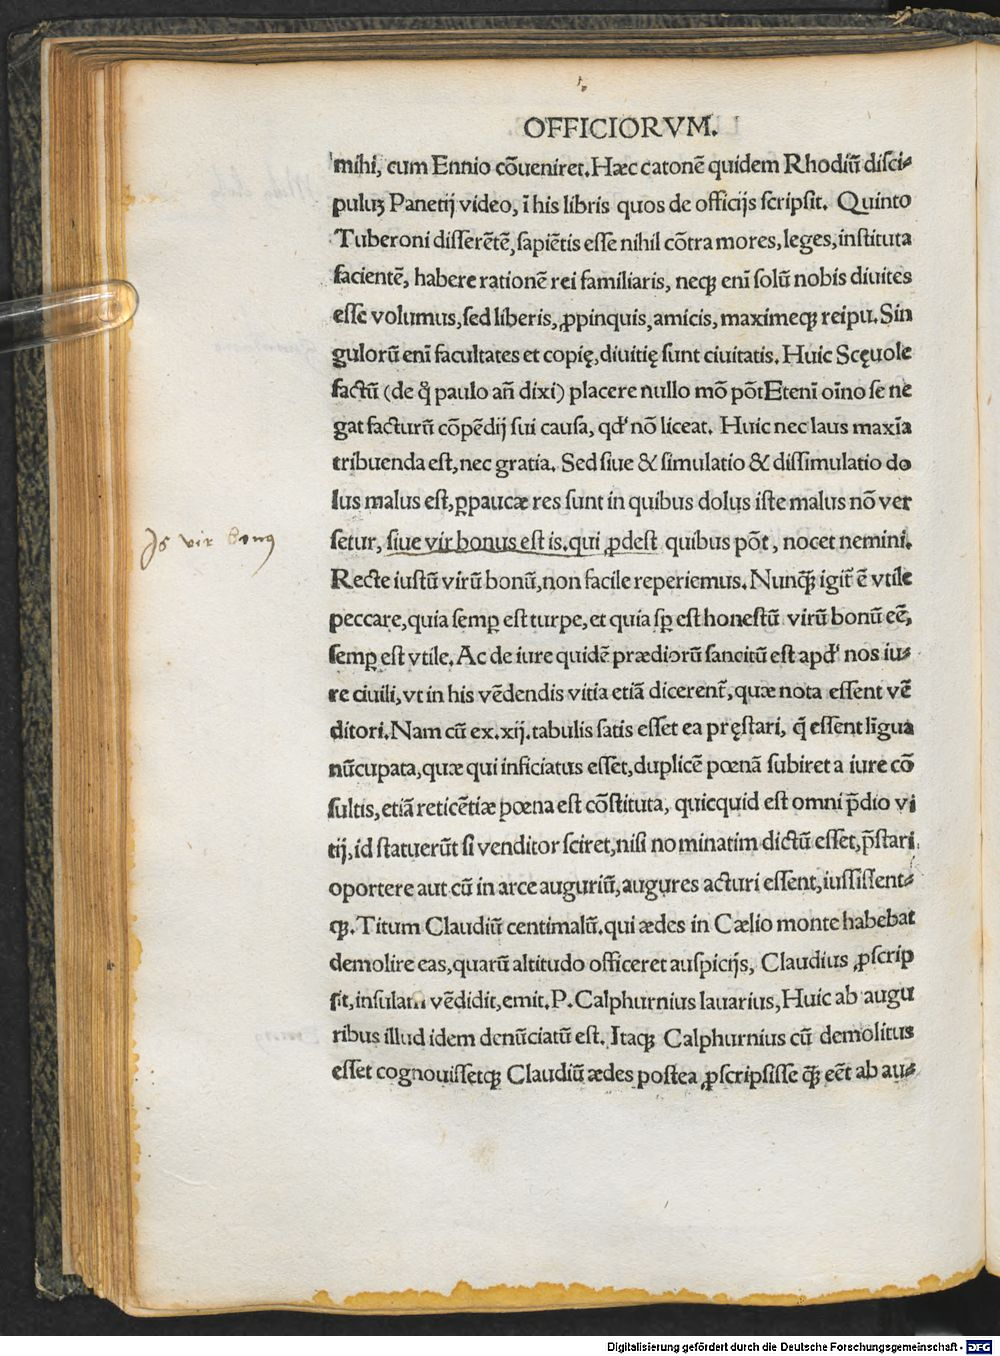 OFFICIORVM.
mihi, cum Ennio cōueniret. Hæc catonē quidem Rhodiū disci⸗
puluꝫ Panetij video, ī his libris quos de officijs scripsit. Quinto
Tuberoni differētē, sapiētis esse nihil cōtra mores, leges, instituta
facientē, habere rationē rei familiaris, neqꝫ enī solū nobis diuites
esse volumus, sed liberis, ꝓpinquis, amicis, maximeqꝫ reipu. Sin
gulorū enī facultates et copię, diuitię sunt ciuitatis. Huic Scęuole
factū (de q̊ paulo añ dixi) placere nullo mō pōt Etenī oīno se ne
gat facturū cōpēdij sui causa, qd' nō liceat. Huic nec laus maxīa
tribuenda est, nec gratia. Sed siue & simulatio & dissimulatio do
lus malus est, ꝑpaucæ res sunt in quibus dolus iste malus nō ver
setur, siue vir bonus est is. qui ꝓdest quibus pōt, nocet nemini.
Is vir bonus
Recte iustū virū bonū, non facile reperiemus. Nunq̄ꝫ igit̄ ē vtile
peccare, quia semꝑ est turpe, et quia sꝑ est honestū virū bonū eē,
semꝑ est vtile. Ac de iure quidē prædiorū sancitū est apd' nos iu⸗
re ciuili, vt in his vēdendis vitia etiā dicerent̄, quæ nota essent vē
ditori. Nam cū ex. xij. tabulis satis esset ea pręstari, q̄ essent līgua
nūcupata, quæ qui inficiatus esset, duplicē pœnā subiret a iure cō
sultis, etiā reticētiæ pœna est cōstituta, quicquid est omni p̄dio vi
tij, id statuerūt si venditor sciret, nisi no minatim dictū esset, p̄stari
oportere aut cū in arce auguriū, augures acturi essent, iussissent⸗
qꝫ. Titum Claudiū centimalū. qui ædes in Cælio monte habebat
demolire eas, quarū altitudo officeret auspicijs, Claudius ꝓscrip
sit, insulam vēdidit, emit. P. Calphurnius lauarius, Huic ab augu
ribus illud idem denūciatū est. Itaqꝫ Calphurnius cū demolitus
esset cognouissetqꝫ Claudiū ædes postea ꝓscripsisse q̄ꝫ eēt ab au⸗
Digitalisierung gefördert durch die Deutsche Forschungsgemeinschaft - DFG